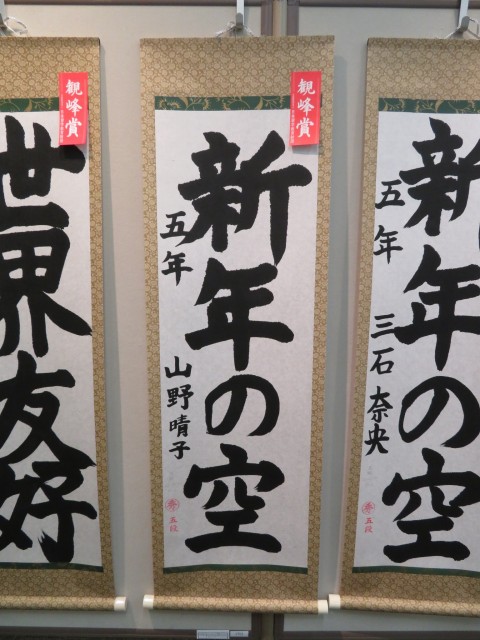 観峰賞
世界友好
観峰賞
新年の空
五年
山野晴子
秀
五段
新年の空
五年
三石奈央
秀
五段